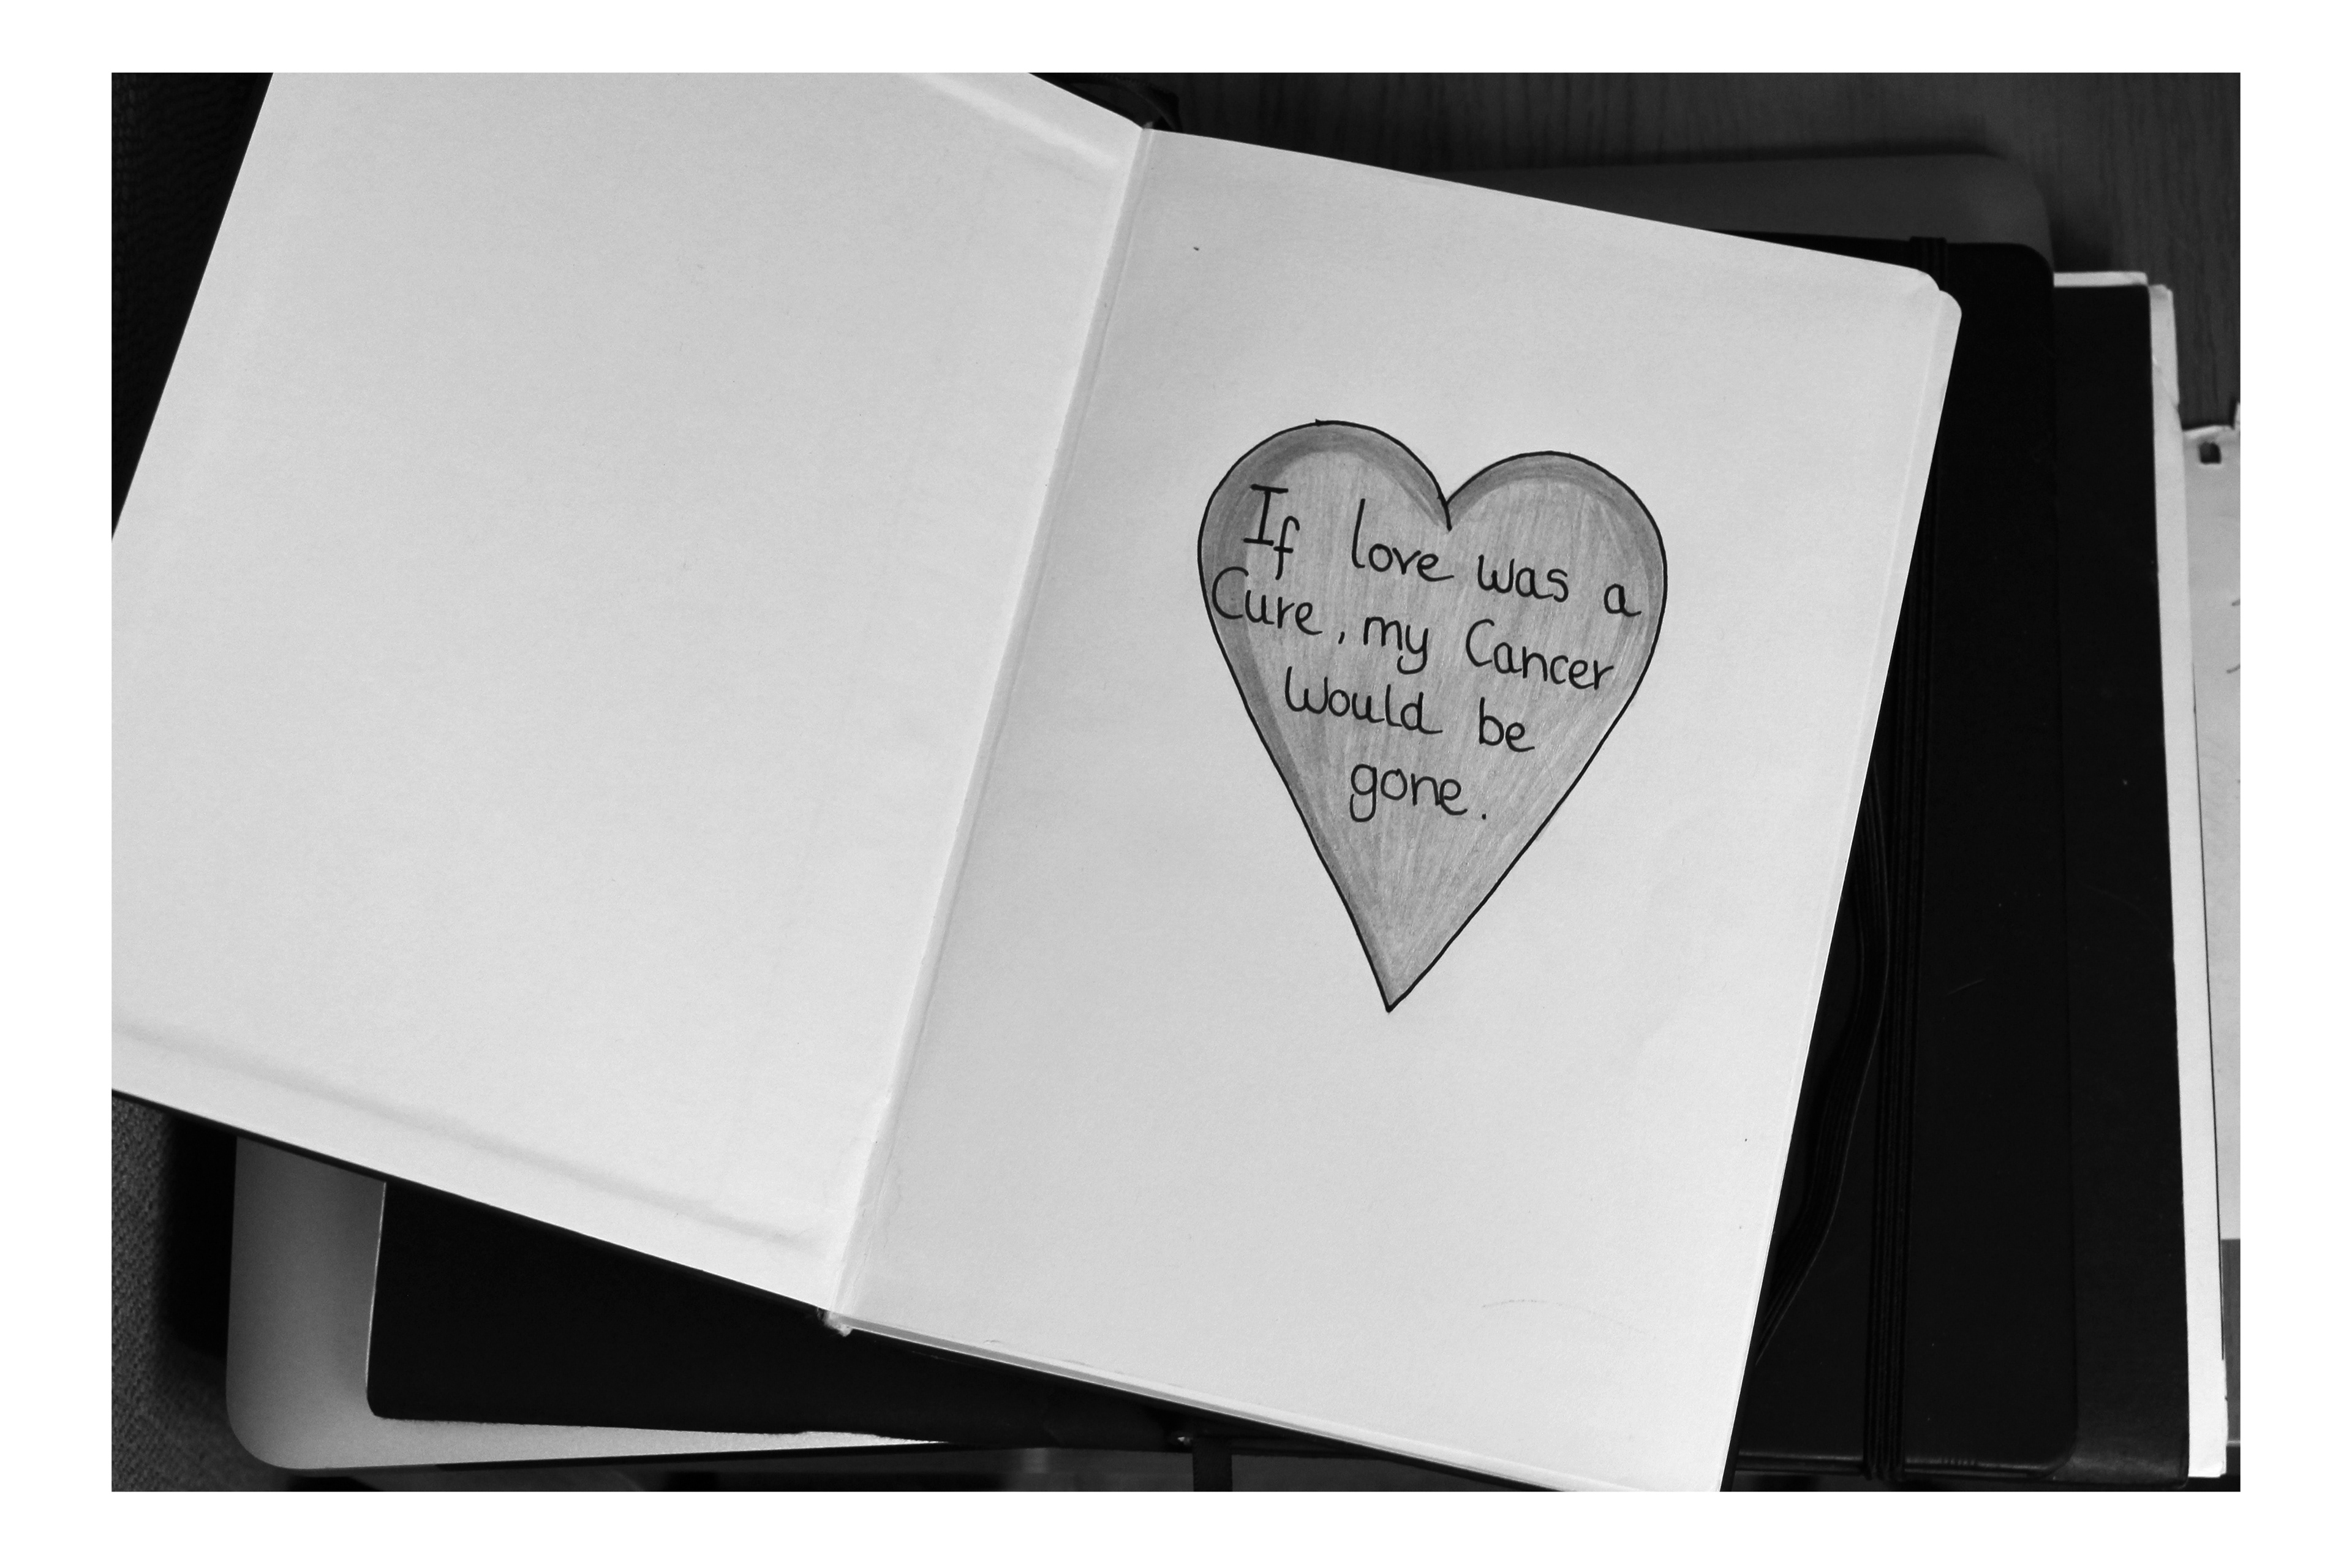 If love was a
Cure, my Cancer
Would be
gone.